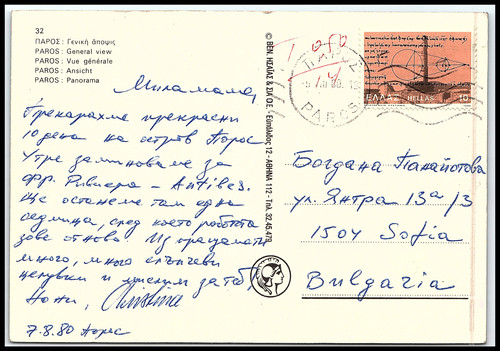 32
ΠΑΡΟΣ: Γενική άποψις
PAROS: General view
PAROS: Vue générale
PAROS: Ansicht
PAROS: Panorama
Мила мама,
Прекарахме прекрасни
10 дена на остров Парос.
Утре заминаваме за
Фр. Ривиера – Antibes.
Ще останеме там една
седмица, след което работата
зове отново. Изпращаме ти
много, много слънчеви
целувки и мислим за теб.
Christina
7.8.80 Парос
© ΒΕΝ. ΗΣΑΪΑΣ & ΣΙΑ Ο.Ε. - Εύπόλιδος 12 - ΑΘΗΝΑΙ 112 - Τηλ. 32.45.479
ΠΑΡΟΣ
PAROS
ΕΛΛΑΣ HELLAS
Богдана Панайотова
ул. Янтра 13а /3
1504 Sofia
Bulgaria